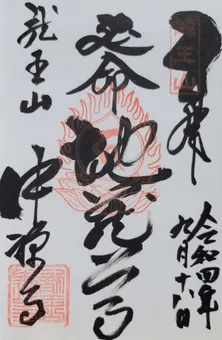 奉拝
令和四年
九月十日
延命
地蔵尊
龍王山
中禅寺